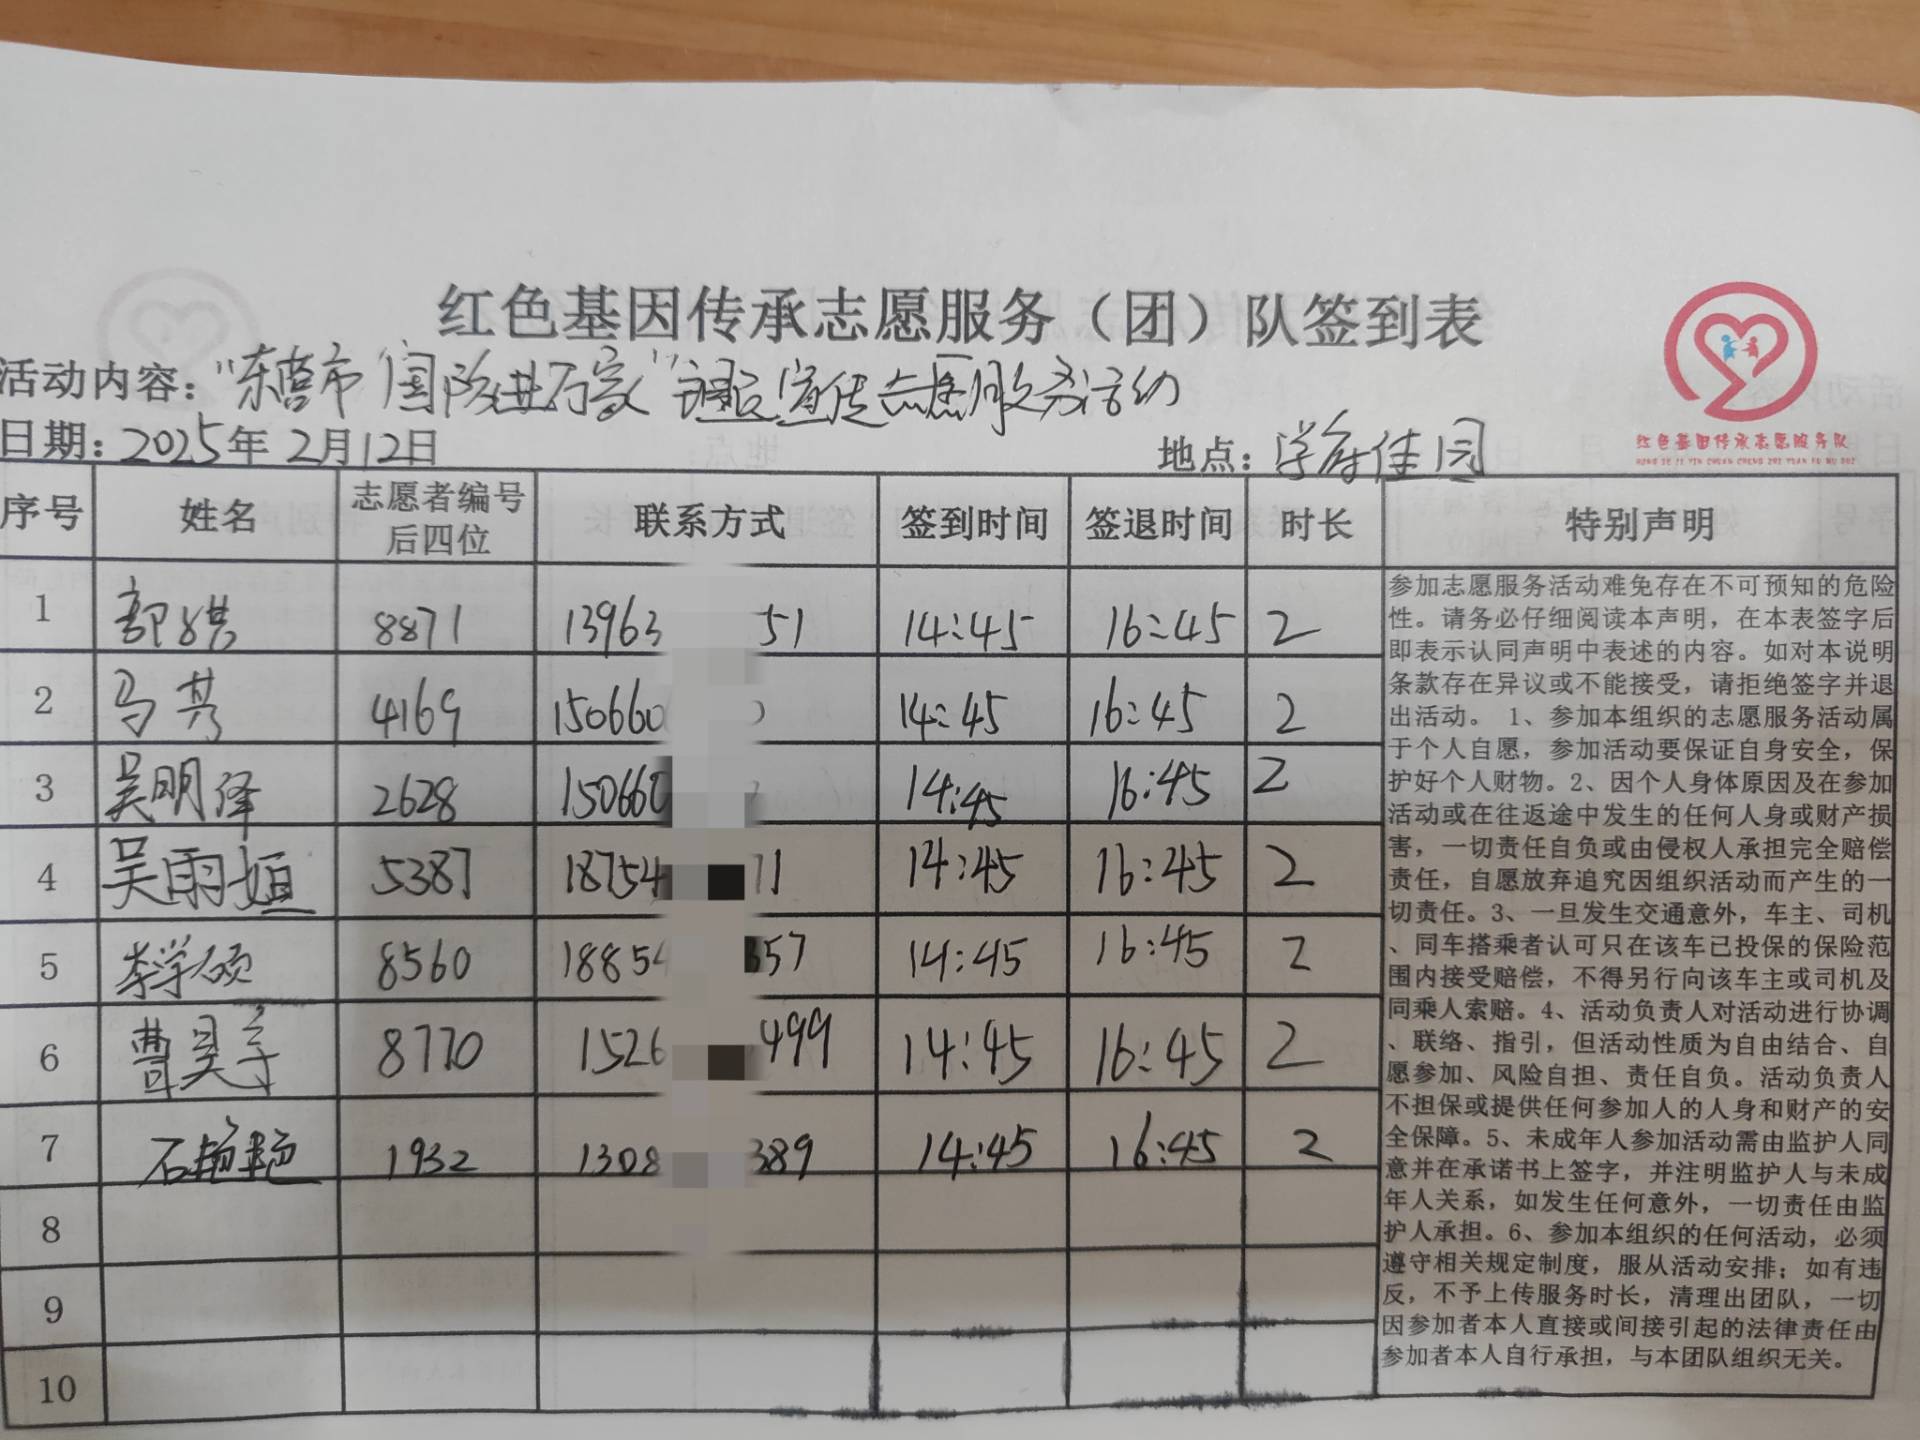 红色基因传承志愿服务（团）队签到表
活动内容：“东营市“国防进万家”主题宣传志愿服务活动
日期：2025年2月12日 地点：学府佳园
红色基因传承志愿服务队
序号 姓名 志愿者编号后四位 联系方式 签到时间 签退时间 时长 特别声明
1 8871 13963 51 14:45 16:45 2
2 马芳 4169 150660 14:45 16:45 2
3 吴明泽 2628 150660 14:45 16:45 2
4 吴雨姮 5387 18754 71 14:45 16:45 2
5 李学硕 8560 1885 357 14:45 16:45 2
6 曹昊宇 8770 1526 499 14:45 16:45 2
7 石艳艳 1932 1308 389 14:45 16:45 2
8
9
10
参加志愿服务活动难免存在不可预知的危险
性。请务必仔细阅读本声明，在本表签字后
即表示认同声明中表述的内容。如对本说明
条款存在异议或不能接受，请拒绝签字并退
出活动。 1、参加本组织的志愿服务活动属
于个人自愿，参加活动要保证自身安全，保
护好个人财物。2、因个人身体原因及在参加
活动或在往返途中发生的任何人身或财产损
害，一切责任自负或由侵权人承担完全赔偿
责任，自愿放弃追究因组织活动而产生的一
切责任。3、一旦发生交通意外，车主、司机
、同车搭乘者认可只在该车已投保的保险范
围内接受赔偿，不得另行向该车主或司机及
同乘人索赔。4、活动负责人对活动进行协调
、联络、指引，但活动性质为自由结合、自
愿参加、风险自担、责任自负。活动负责人
不担保或提供任何参加人的人身和财产的安
全保障。5、未成年人参加活动需由监护人同
意并在承诺书上签字，并注明监护人与未成
年人关系，如发生任何意外，一切责任由监
护人承担。6、参加本组织的任何活动，必须
遵守相关规定制度，服从活动安排；如有违
反，不予上传服务时长，清理出团队，一切
因参加者本人直接或间接引起的法律责任由
参加者本人自行承担，与本团队组织无关。